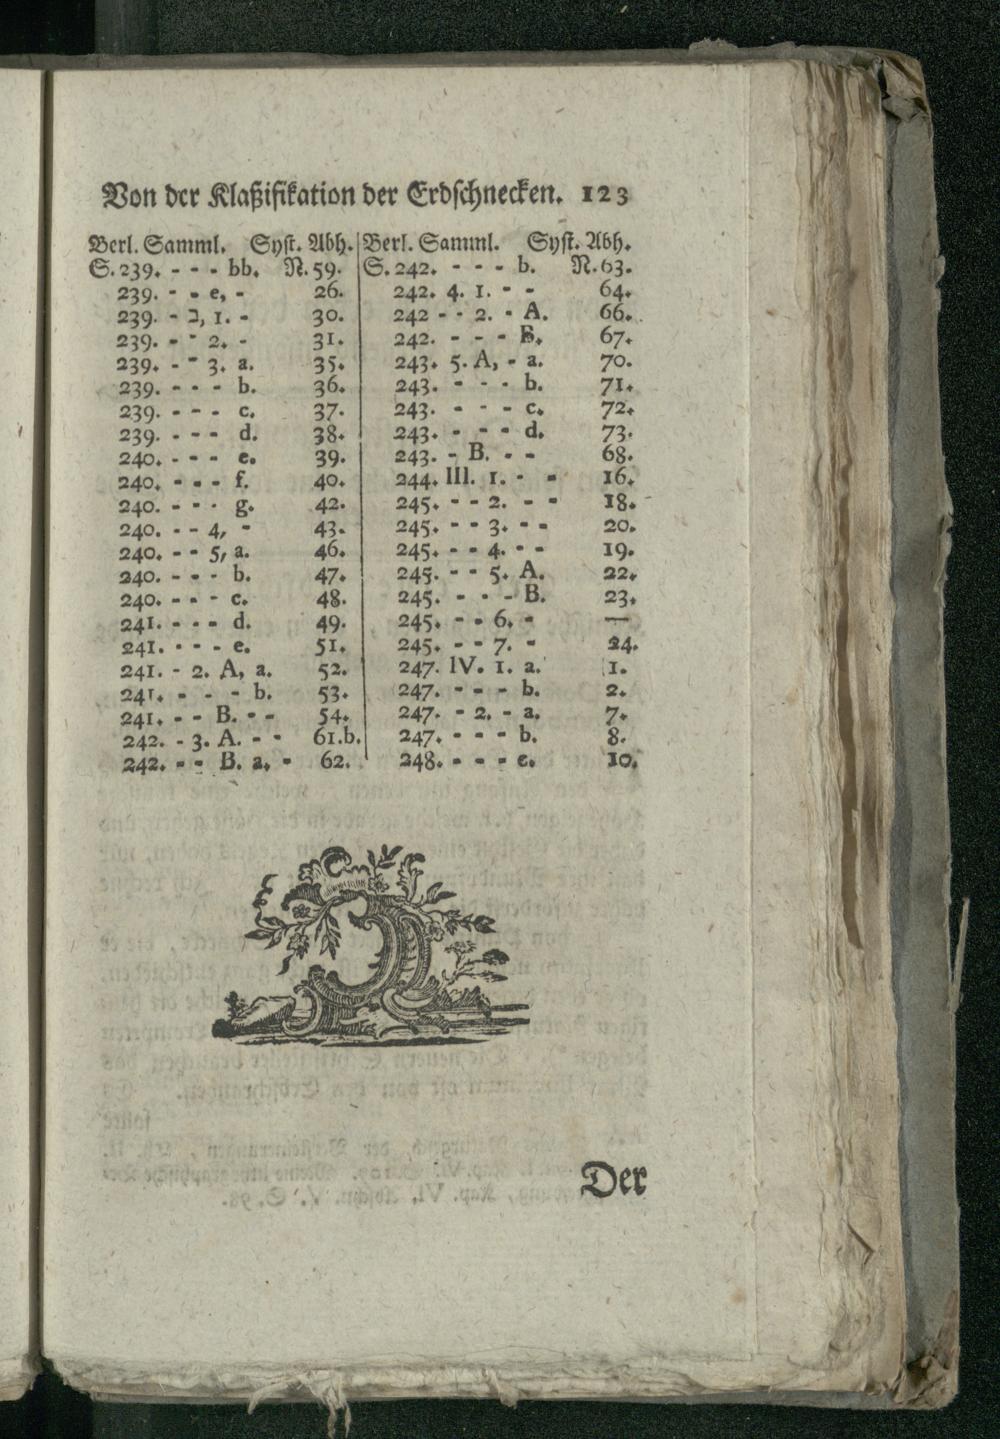 Von der Klaßifikation der Erdschnecken. 123
Berl. Samml. Syst. Abh.
S. 239. - - - bb. N. 59.
239. - - e, - 26.
239. - 2, 1. - 30.
239. - - 2. - 31.
239. - - 3. a. 35.
239. - - - b. 36.
239. - - - c. 37.
239. - - - d. 38.
240. - - - e. 39.
240. - - - f. 40.
240. - - - g. 42.
240. - - 4, - 43.
240. - - 5, a. 46.
240. - - - b. 47.
240. - - - c. 48.
241. - - - d. 49.
241. - - - e. 51.
241. - 2. A, a. 52.
241. - - - b. 53.
241. - - B. - - 54.
242. - 3. A. - - 61.b.
242. - - B. a. - 62.
Berl. Samml. Syst. Abh.
S. 242. - - - b. N. 63.
242. 4. 1. - - 64.
242 - - 2. - A. 66.
242. - - - B. 67.
243. 5. A, - a. 70.
243. - - - b. 71.
243. - - - c. 72.
243. - - - d. 73.
243. - B. - - 68.
244. III. 1. - - 16.
245. - - 2. - - 18.
245. - - 3. - - 20.
245. - - 4. - - 19.
245. - - 5. A. 22.
245. - - - B. 23.
245. - - 6. - —
245. - - 7. - 24.
247. IV. 1. a. 1.
247. - - - b. 2.
247. - 2. - a. 7.
247. - - - b. 8.
248. - - - c. 10.
Der